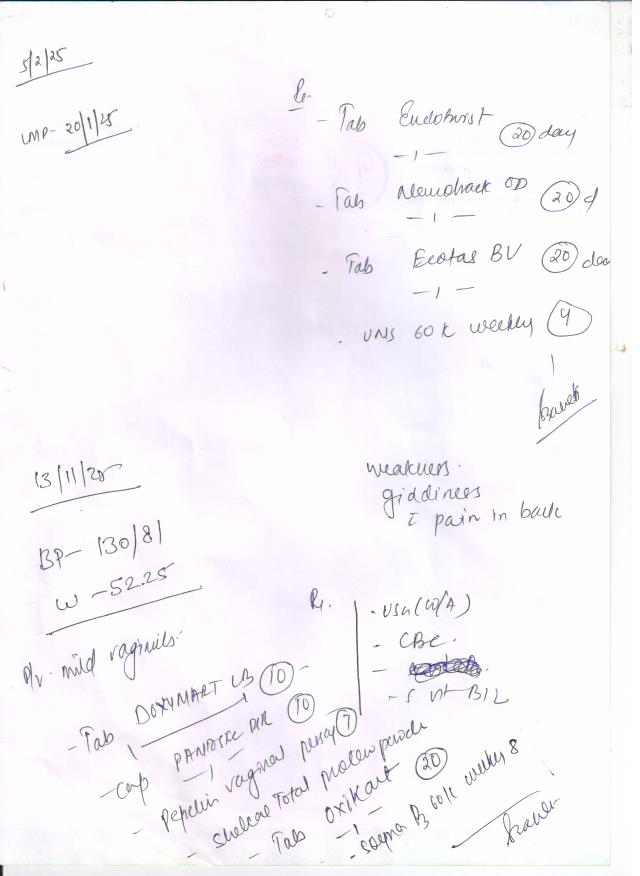 5/2/25
LMP- 20/1/25
Rx
- Tab Endoburst 20 day
- 1 -
- Tab OD 20 d
- 1 -
- Tab Ecotas BV 20 day
- 1 -
. UNS 60 K weekly 4
13/11/25
BP- 130/81
W - 52.25
P/v. mild vaginitis.
weakness.
giddiness
c̄ pain in back
Rx.
. USG (W/A)
- CBC.
- S vit B12
- Tab DOXYMART LB 10
1
- Cap DSR 10
- 1 -
- vaginal 7
- Shelcal Total protein powder
- Tab OxiKart 20
- 1 -
- D3 60K weekly 8